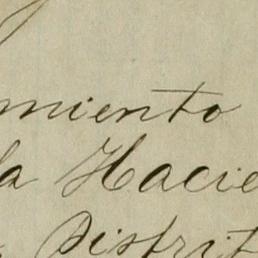 miento
la Hacie
Distrit